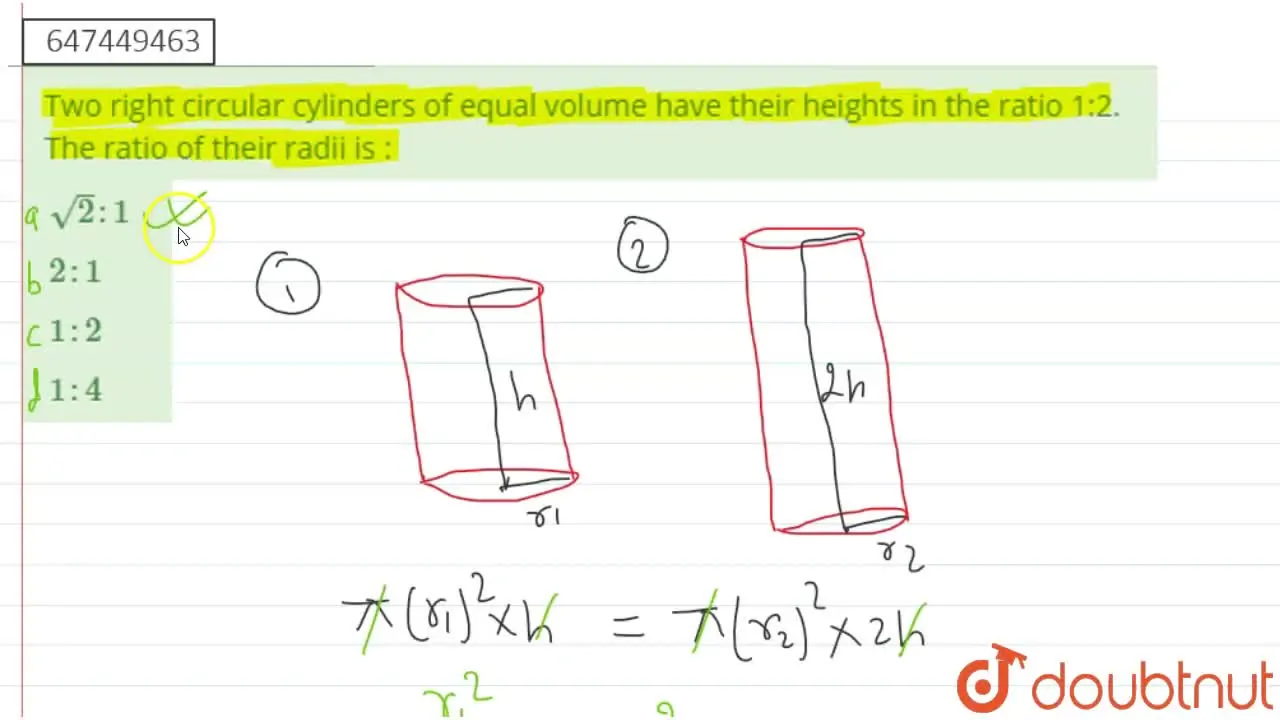 647449463
Two right circular cylinders of equal volume have their heights in the ratio 1:2.
The ratio of their radii is :
a √2 : 1
b 2 : 1
c 1 : 2
d 1 : 4
1
2
h
2h
r1
r2
π(r₁)² × h = π(r₂)² × 2h
r₁²
doubtnut